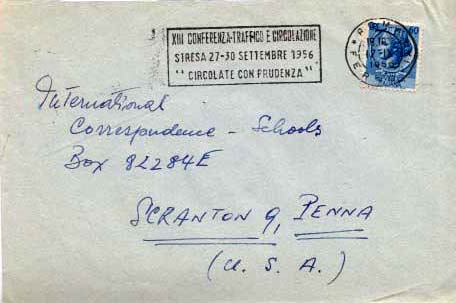 XIII CONFERENZA-TRAFFICO E CIRCOLAZIONE
STRESA 27-30 SETTEMBRE 1956
"CIRCOLATE CON PRUDENZA"
International
Correspondence - Schools
Box 82284E
SCRANTON 9, PENNA
(U. S. A.)